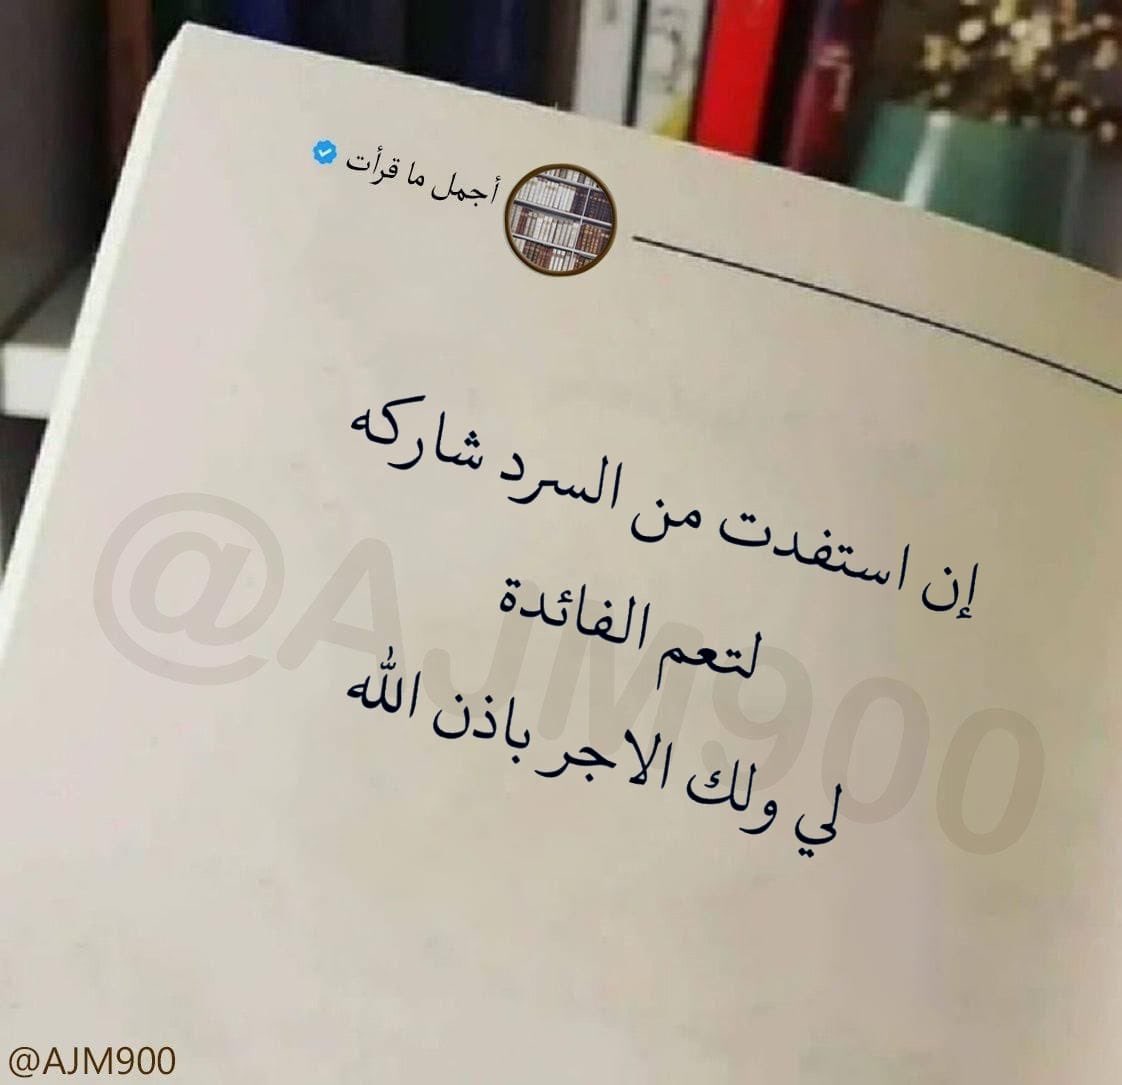 أجمل ما قرأت
إن استفدت من السرد شاركه
لتعم الفائدة
لي ولك الاجر باذن الله
@AJM900
@AJM900